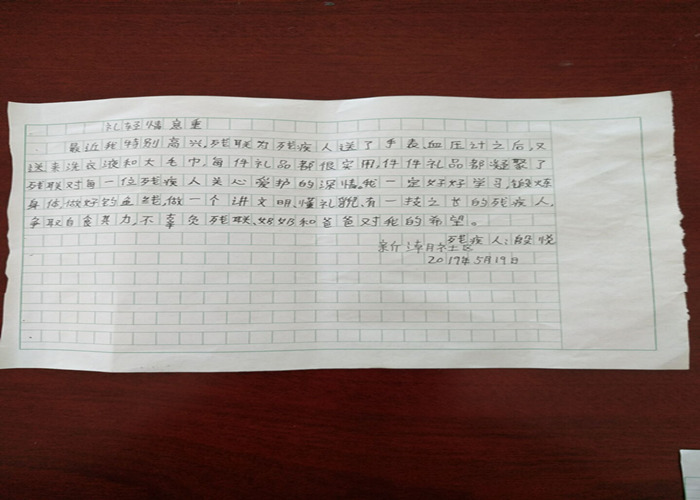 礼轻情意重
最近我特别高兴,残联为残疾人送了手表,血压计之后,又
送来洗衣液和大毛巾,每件礼品都很实用,件件礼品都凝聚了
残联对每一位残疾人关心爱护的深情,我一定好好学习,锻炼
身体,做好钓鱼线,做一个讲文明,懂礼貌,有一技之长的残疾人,
争取自食其力,不辜负残联,奶奶和爸爸对我的希望。
残疾人:殷悦
社区
2019年5月19日